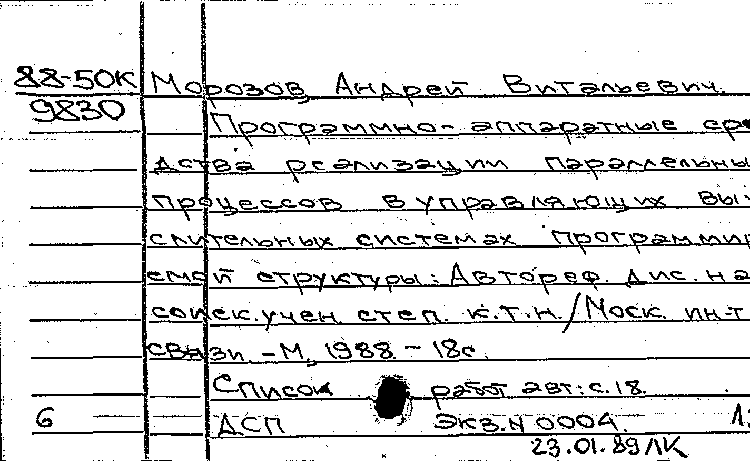 88-50К Морозов, Андрей Витальевич.
9830 Программно-аппаратные сре
дства реализации параллельны
процессов в управляющих вы
слительных системах программи
емой структуры: Автореф. дис. на
соиск. учен. степ. к.т.н. / Моск. ин-т
связи. - М., 1988. - 18с.
Список работ авт: с. 18.
6 ДСП Экз. N 0004.
23.01.89 ЛК